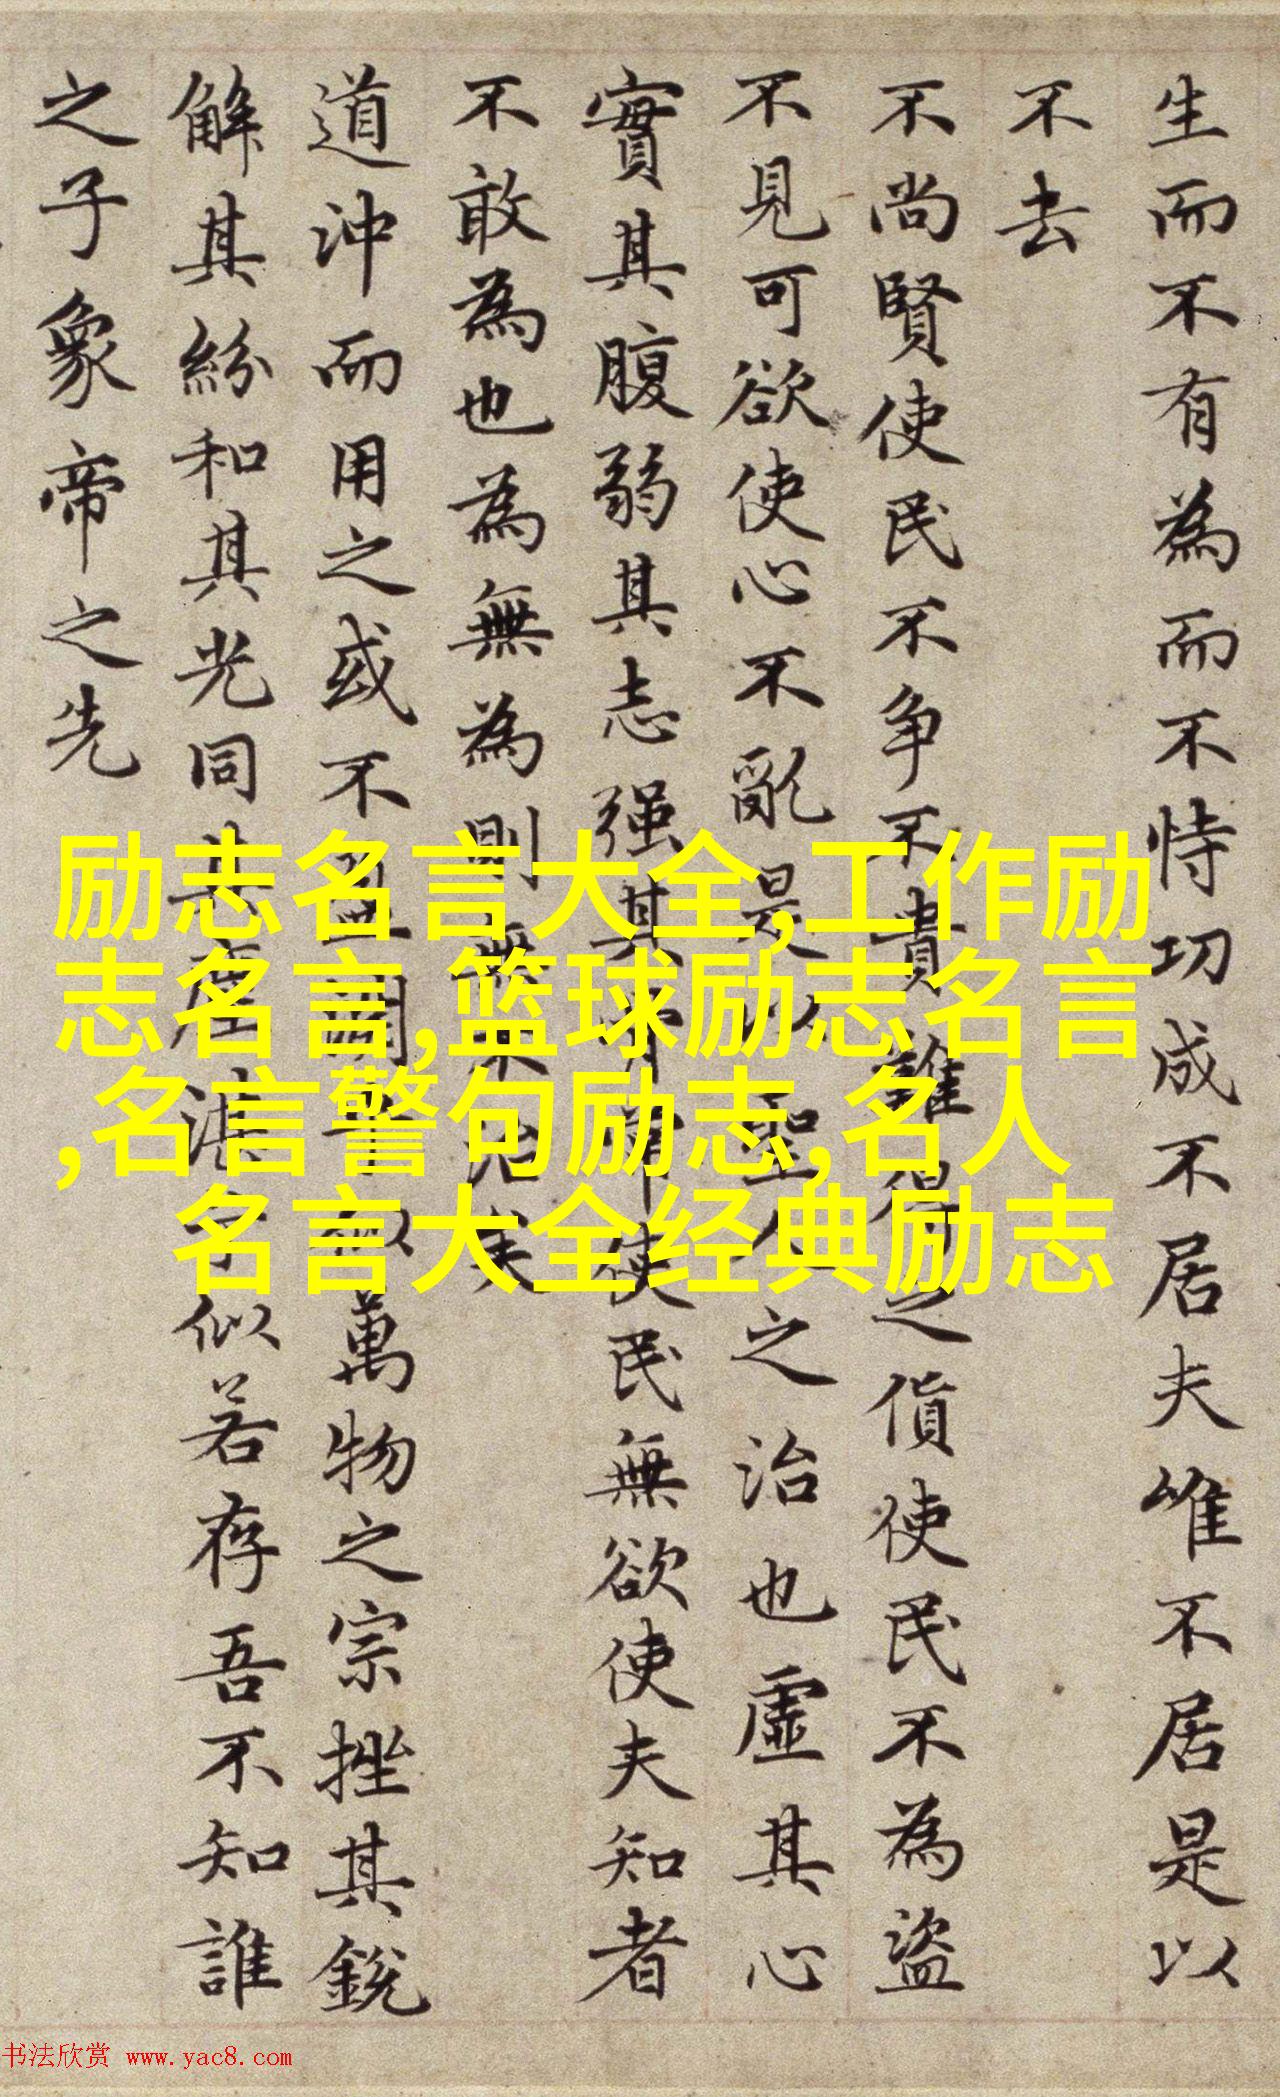 生而不有為而不恃功成不居夫唯不居是以
不去
不尚賢使民不争不貴難得之貨使民不為盜
不見可欲使心不亂是以聖人之治也虛其心
實其腹弱其志强其骨常使民無欲使夫知者
不敢為也為無為則無不治矣
道沖而用之或不盈淵乎似萬物之宗挫其銳
解其紛和其光同其塵湛乎似若存吾不知誰
之子象帝之先
励志名言大全,工作励
志名言,篮球励志名言
,名言警句励志,名人
名言大全经典励志
书法欣赏 www.yac8.com